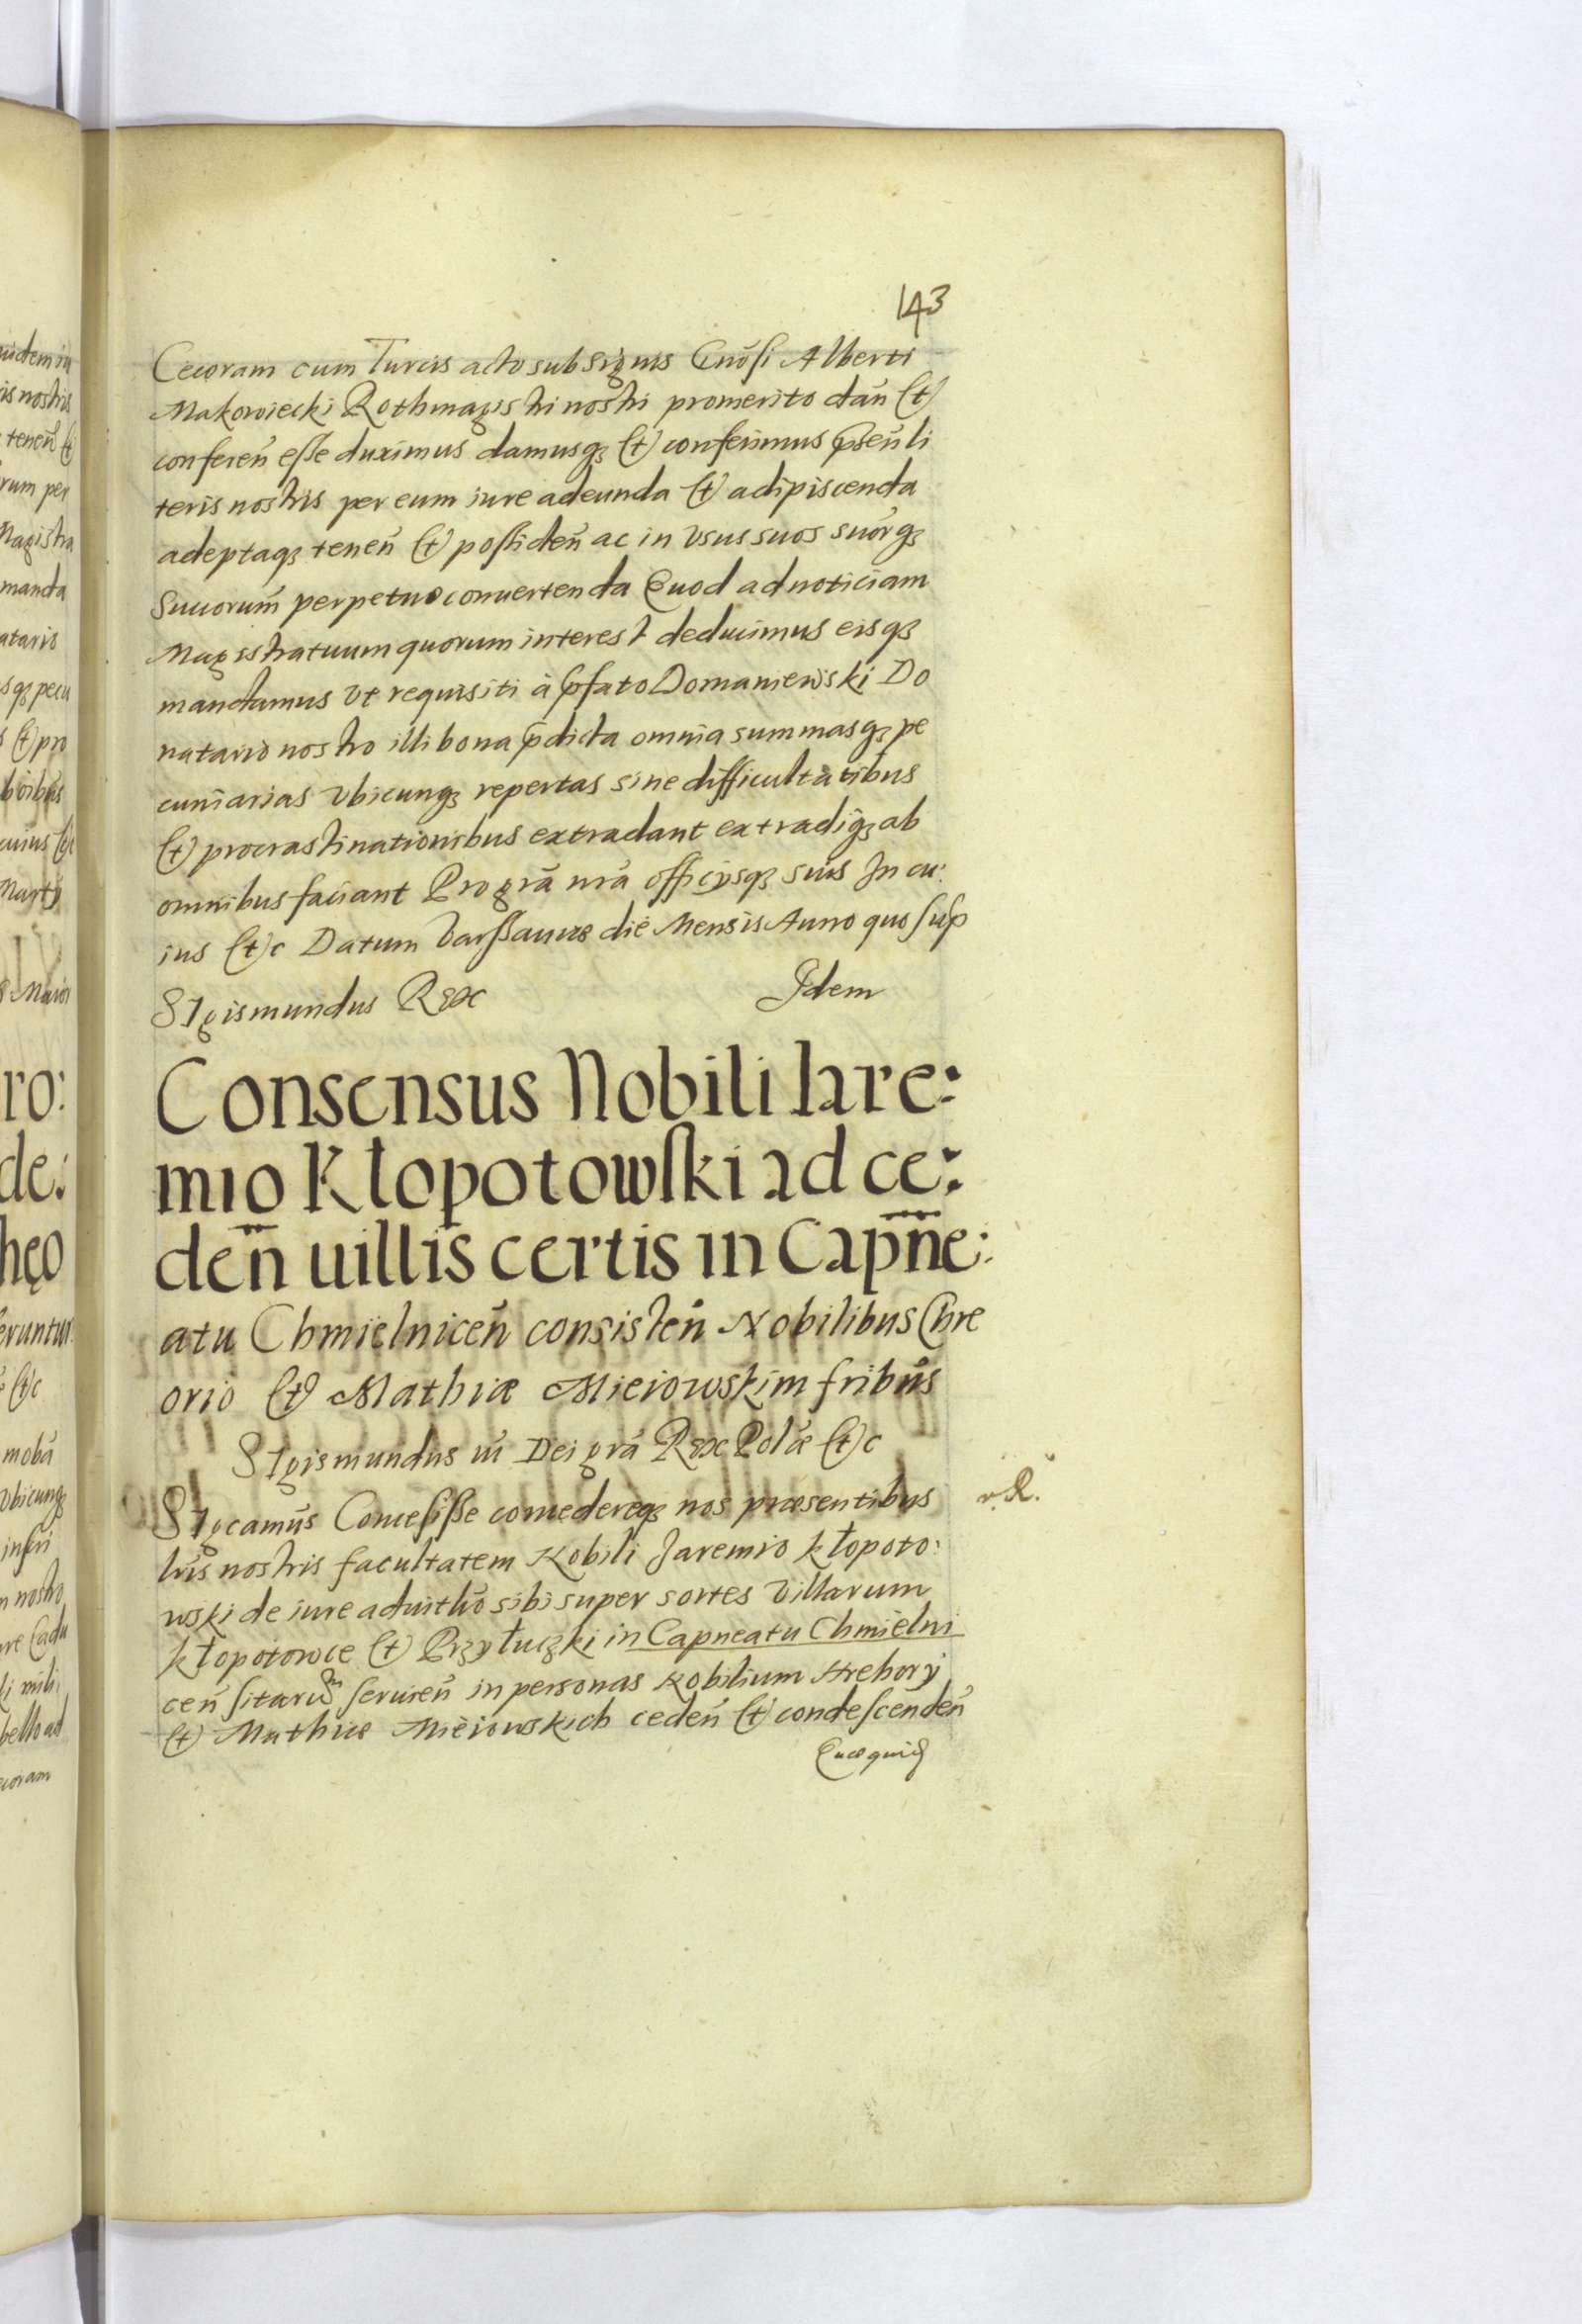 143
Cecoram cum Turcis acto sub signis Gnōsi Alberti
Makowiecki Rothmagistri nostri promerito dan̄ et
conferen̄ esse duximus damusq₃ et conferimus p̄sen̄ li
teris nostris per eum iure adeunda et adipiscenda
adeptaq₃ tenen̄ et possiden̄ ac in Vsus suos suor̄q₃
Succorum̄ perpetuo conuertenda Quod ad noticiam
Magistratuum quorum interest deducimus eisq₃
mandamus Vt requisiti à p̄fato Domaniewski Do
natario nostro illi bona p̄dicta omnia summasq₃ pe
cuniarias Vbicunq₃ repertas sine difficultatibus
et procrastinationibus extradant extradiq₃ ab
omnibus faciant Pro gr̄a nr̄a officysq₃ suis In cu:
ius etc Datum Varssauiæ die Mensis Anno quo sup̄
Sigismundus Rex Idem
Consensus Nobili Iare:
mio Kłopotowski ad ce:
den̄ uillis certis in Capn̄e:
atu Chmielnicen̄ consisten̄ Nobilibus Hre
orio et Mathiæ Mieiowskim fribūs
Sigismundus iii Dei gr̄a Rex Polæ etc
Sigcamūs Concesisse concedereq₃ nos præsentibus
lr̄is nostris facultatem Nobili Jaremio kłopoto:
wski de iure aduitl̄o sibi super sortes Villarum
kłopotowce et Przyłuczki in Capneatu Chmielni
cen̄ sitarūm seruien̄ in personas Nobilium Hrehory
et Mathiæ Mieiowskich ceden̄ et condescenden̄
Quæ quid